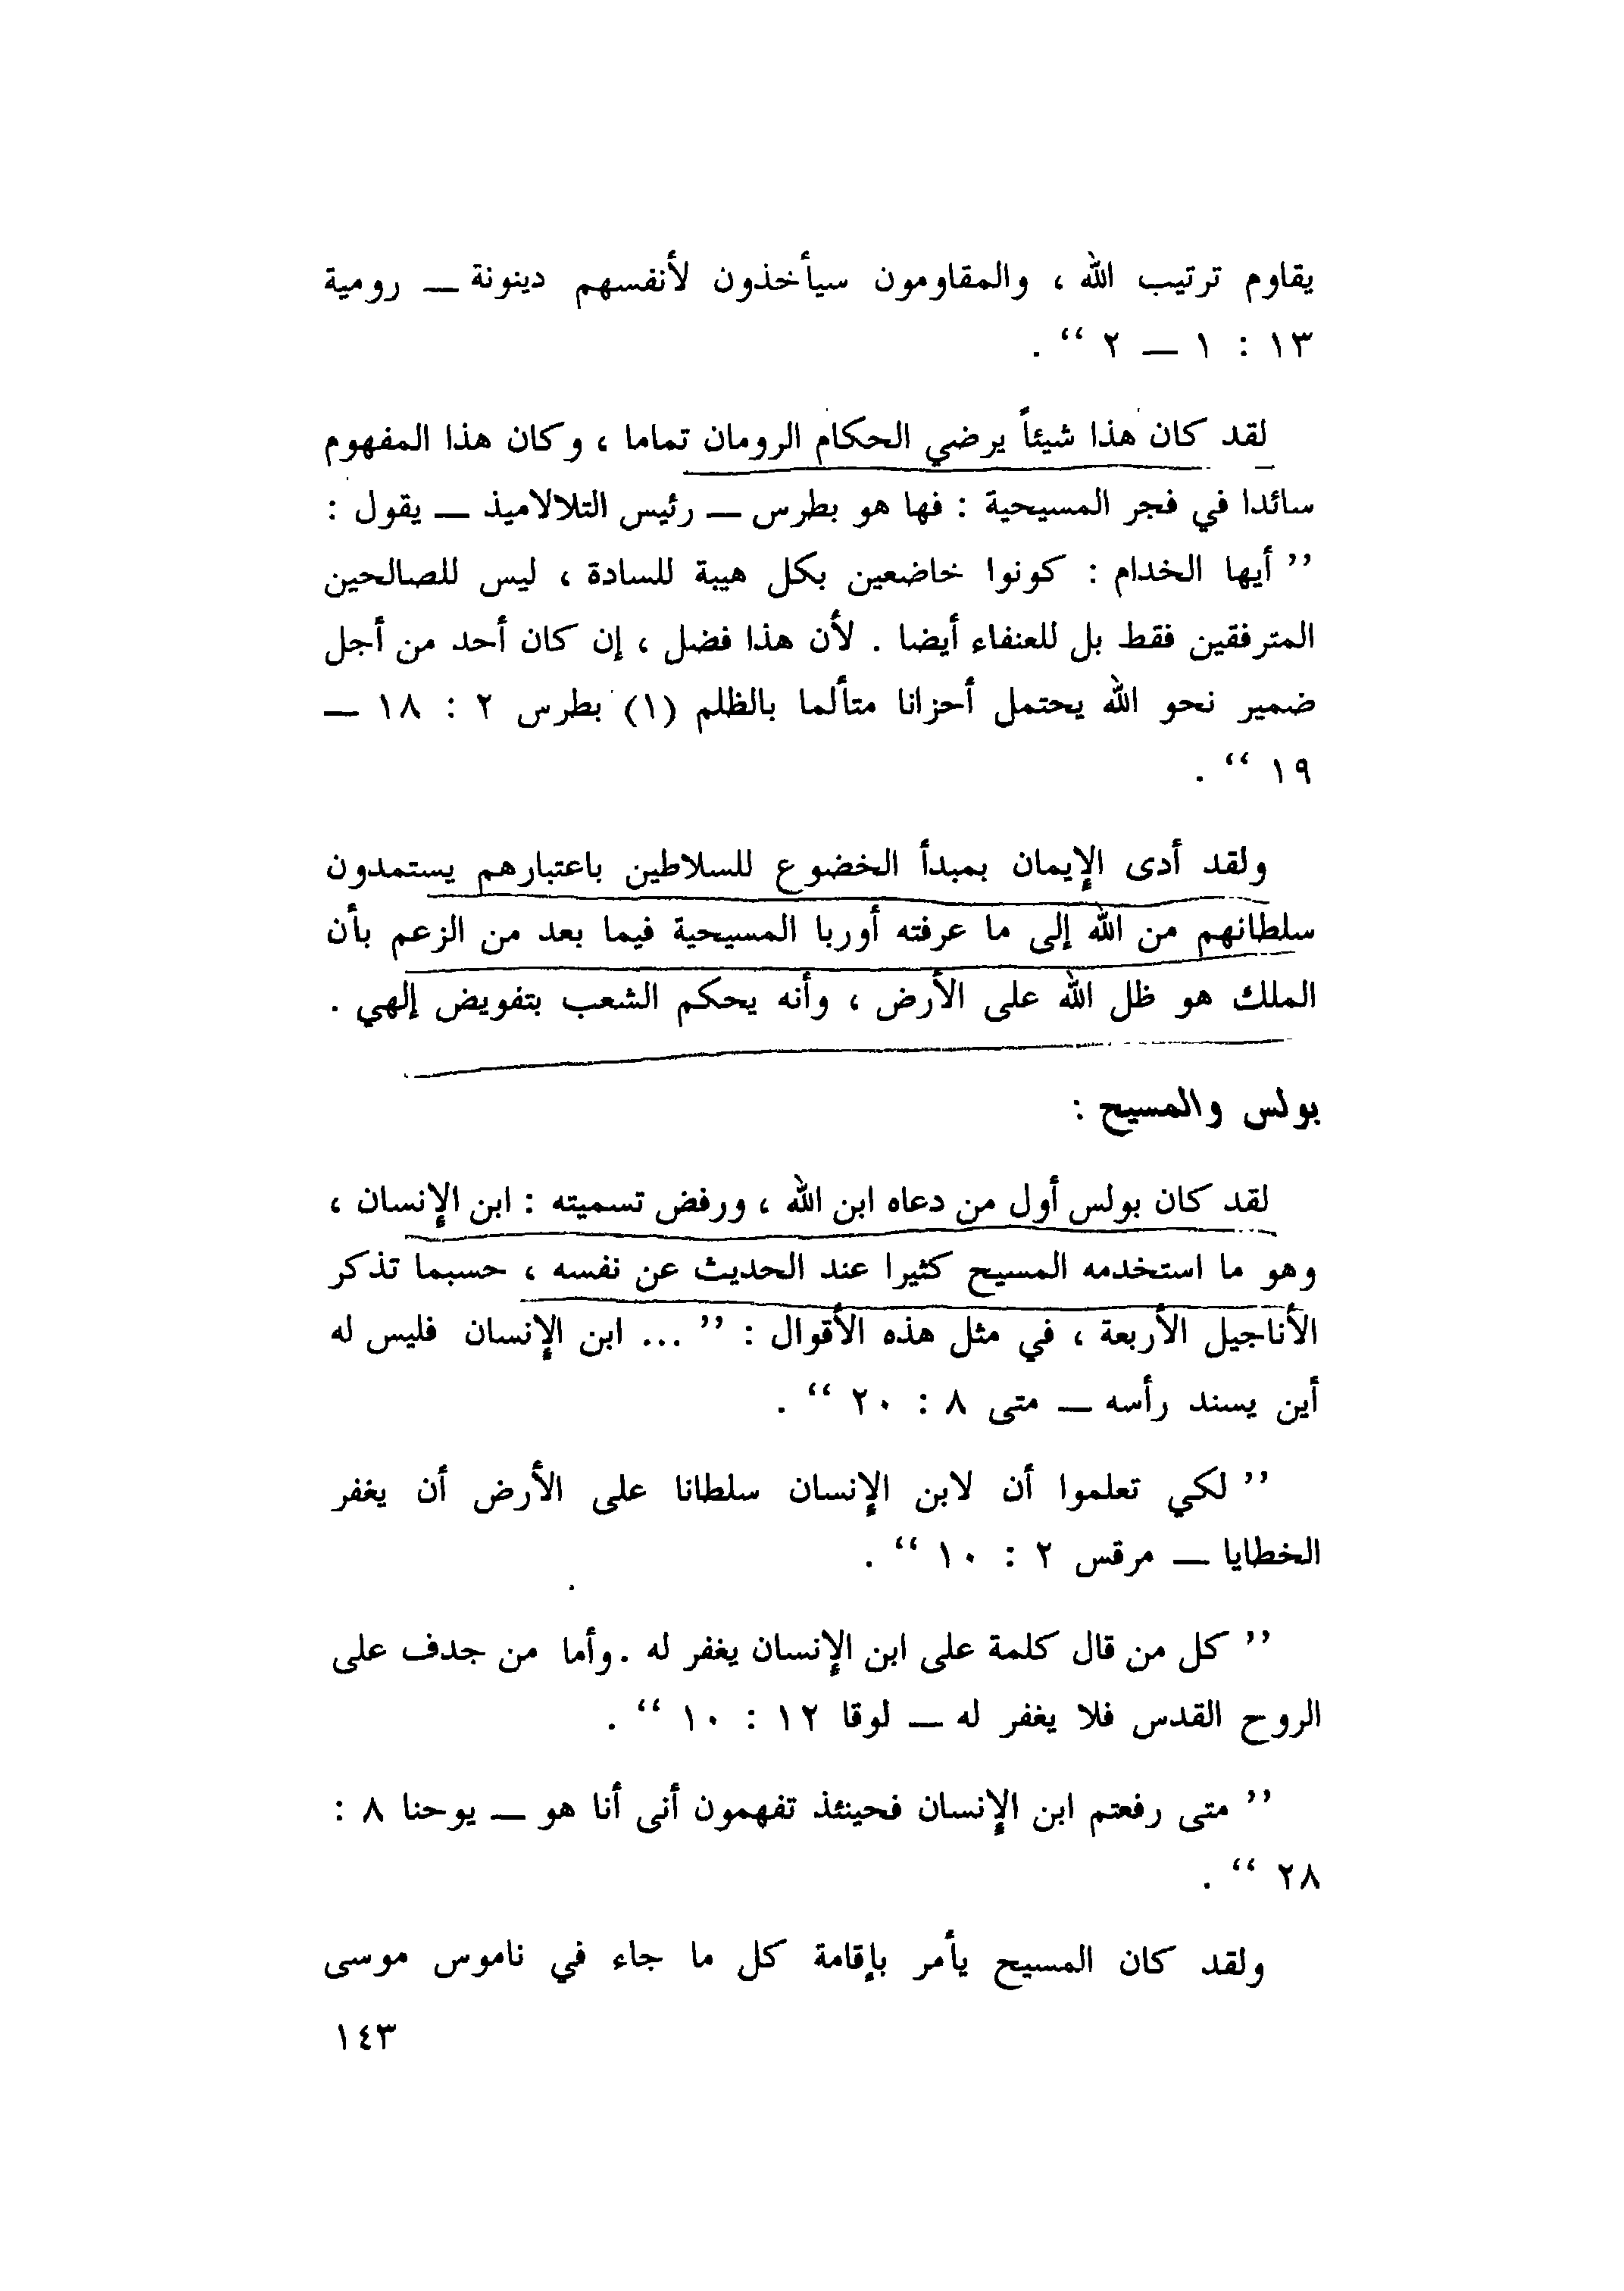 يقاوم ترتيب الله ، والمقاومون سيأخذون لأنفسهم دينونة — رومية
١٣ : ١ — ٢ “ .
لقد كان هذا شيئاً يرضي الحكام الرومان تماما ، وكان هذا المفهوم
سائدا في فجر المسيحية : فها هو بطرس — رئيس التلالاميذ — يقول :
” أيها الخدام : كونوا خاضعين بكل هيبة للسادة ، ليس للصالحين
المترفقين فقط بل للعنفاء أيضا . لأن هذا فضل ، إن كان أحد من أجل
ضمير نحو الله يحتمل أحزانا متألما بالظلم (١) بطرس ٢ : ١٨ —
١٩ “ .
ولقد أدى الإيمان بمبدأ الخضوع للسلاطين باعتبارهم يستمدون
سلطانهم من الله إلى ما عرفته أوربا المسيحية فيما بعد من الزعم بأن
الملك هو ظل الله على الأرض ، وأنه يحكم الشعب بتفويض إلهي .
بولس والمسيح :
لقد كان بولس أول من دعاه ابن الله ، ورفض تسميته : ابن الإنسان ،
وهو ما استخدمه المسيح كثيرا عند الحديث عن نفسه ، حسبما تذكر
الأناجيل الأربعة ، في مثل هذه الأقوال : ” ... ابن الإنسان فليس له
أين يسند رأسه — متى ٨ : ٢٠ “ .
” لكي تعلموا أن لابن الإنسان سلطانا على الأرض أن يغفر
الخطايا — مرقس ٢ : ١٠ “ .
” كل من قال كلمة على ابن الإنسان يغفر له . وأما من جدف على
الروح القدس فلا يغفر له — لوقا ١٢ : ١٠ “ .
” متى رفعتم ابن الإنسان فحينئذ تفهمون أنى أنا هو — يوحنا ٨ :
٢٨ “ .
ولقد كان المسيح يأمر بإقامة كل ما جاء في ناموس موسى
١٤٣